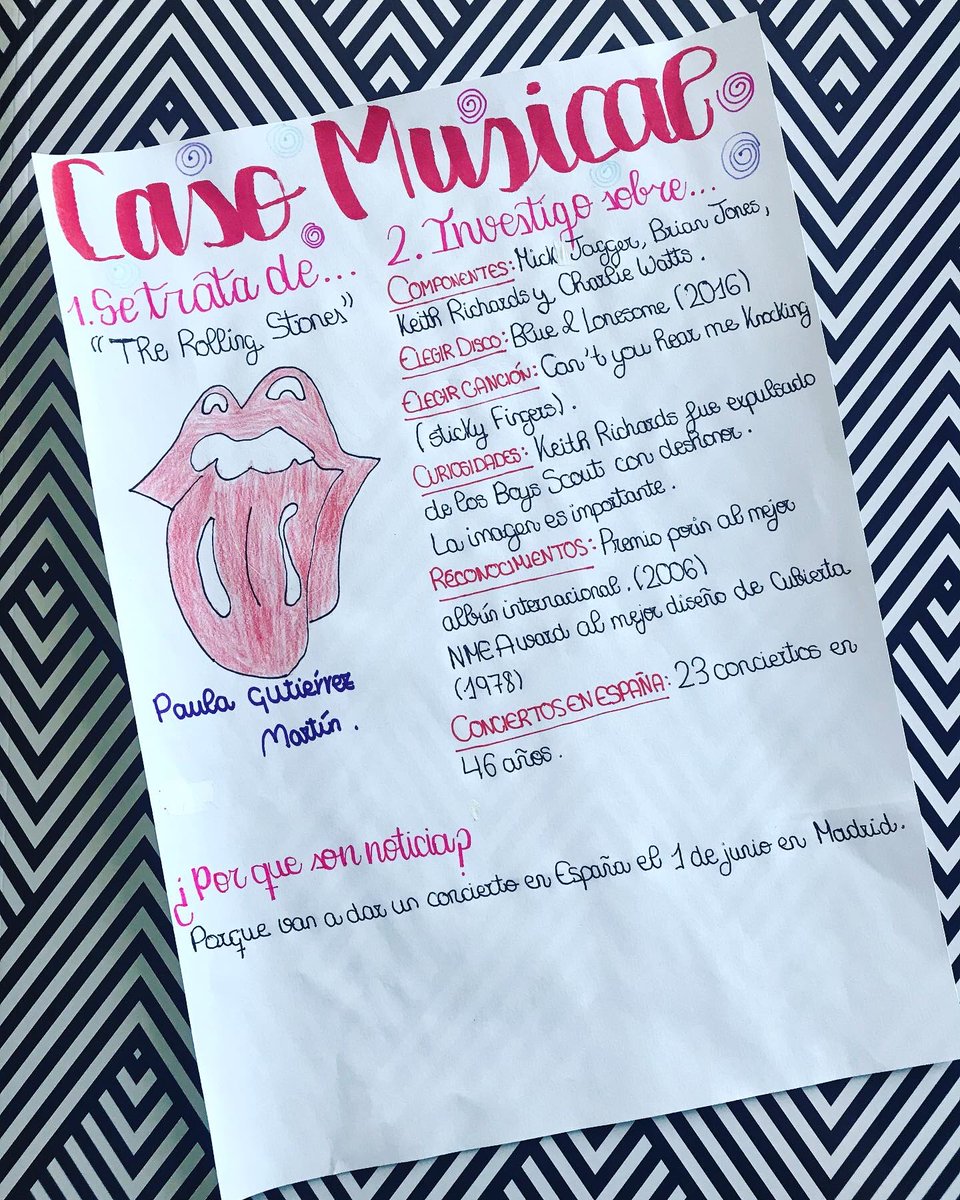 Caso Musical
1. Se trata de...
"The Rolling Stones"
Paula Gutiérrez
Martín.
2. Investigo sobre...
COMPONENTES: Mick Jagger, Brian Jones,
Keith Richards y Charlie Watts.
ELEGIR DISCO: Blue & Lonesome (2016)
ELEGIR CANCIÓN: Can't you hear me Knocking
(sticky Fingers).
CURIOSIDADES: Keith Richards fue expulsado
de los Boys Scout con deshonor.
La imagen es importante.
RECONOCIMIENTOS: Premio porin al mejor
albún internacional. (2006)
NME Award al mejor diseño de Cubierta
(1978)
CONCIERTOS EN ESPAÑA: 23 conciertos en
46 años.
¿Por que son noticia?
Porque van a dar un concierto en España el 1 de junio en Madrid.